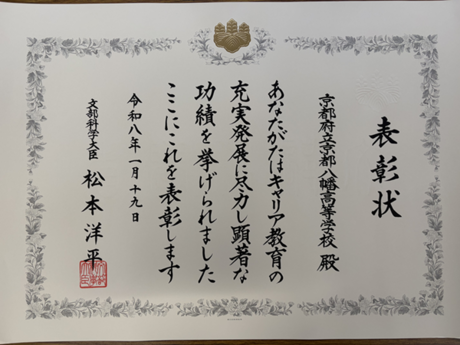 表彰状
京都府立京都八幡高等学校 殿
あなたがたはキャリア教育の
充実発展に尽力し顕著な
功績を挙げられました
ここにこれを表彰します
令和八年一月十九日
文部科学大臣 松本洋平